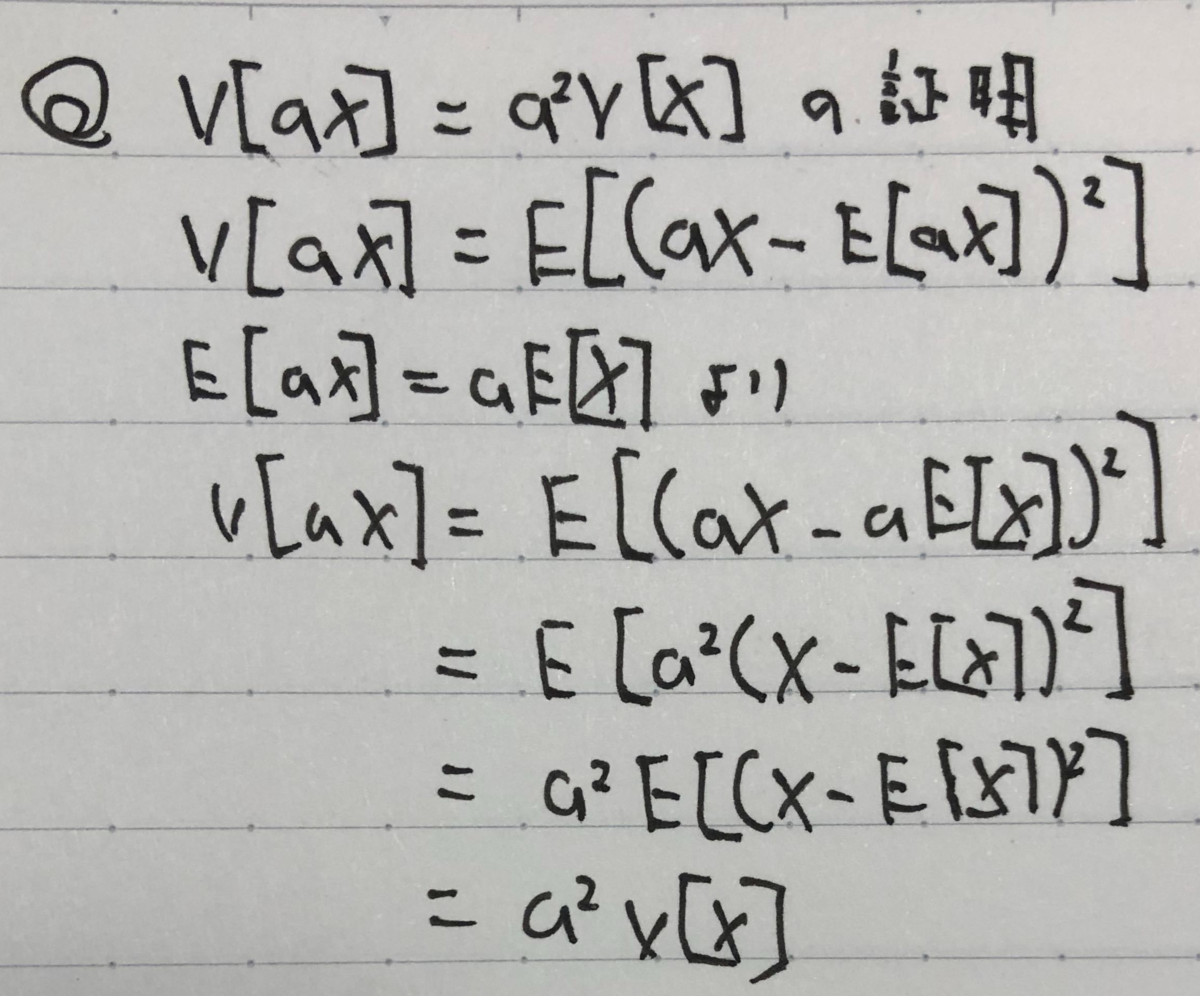 ◎ V[aX] = a²V[X] の証明
V[aX] = E[(aX - E[aX])²]
E[aX] = aE[X] より
V[aX] = E[(aX - aE[X])²]
= E[a²(X - E[X])²]
= a²E[(X - E[X])²]
= a²V[X]